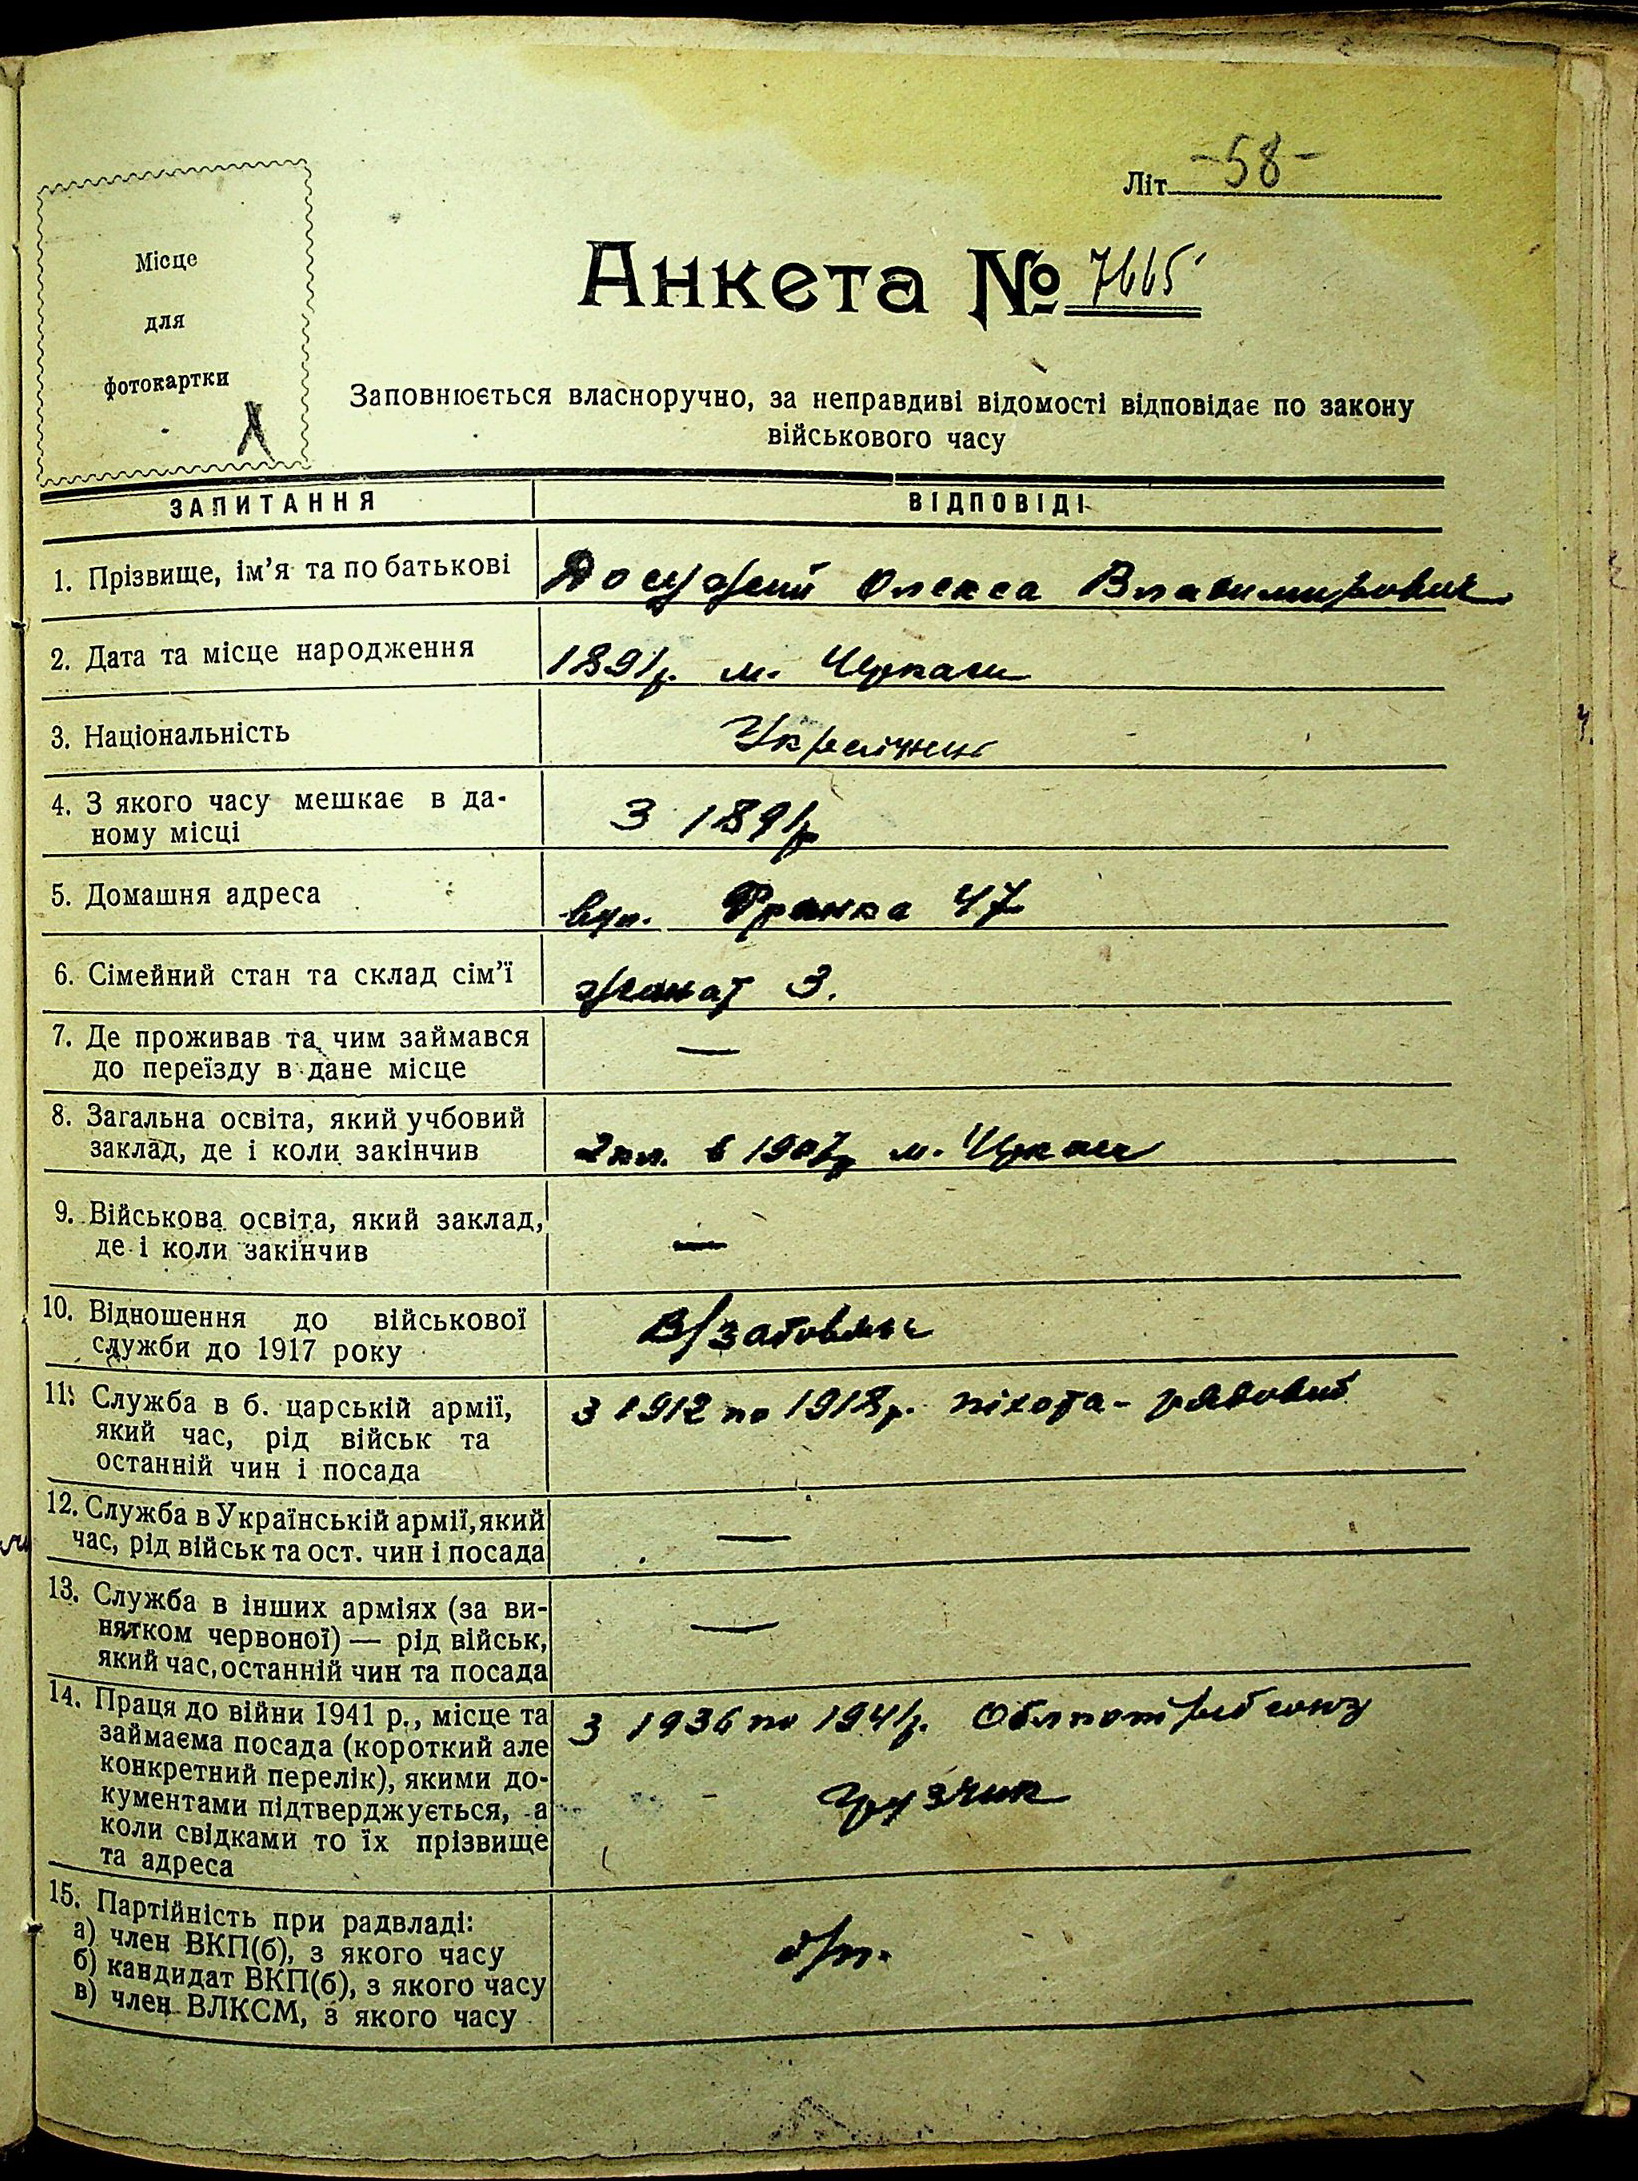 Літ. -58-
Місце
для
фотокартки
Анкета № 7665
Заповнюється власноручно, за неправдиві відомості відповідає по закону
військового часу
ЗАПИТАННЯ ВІДПОВІДІ
1. Прізвище, ім'я та по батькові Олекса Владимирович
2. Дата та місце народження 1891р. м. Черкаси
3. Національність Українець
4. З якого часу мешкає в да-
ному місці З 1891р
5. Домашня адреса вул. Франка 47
6. Сімейний стан та склад сім'ї жонат 3.
7. Де проживав та чим займався
до переїзду в дане місце —
8. Загальна освіта, який учбовий
заклад, де і коли закінчив 2кл. в 1907р м. Черкаси
9. Військова освіта, який заклад,
де і коли закінчив —
10. Відношення до військової
служби до 1917 року
11. Служба в б. царській армії, З 1912 по 1918р. піхота - рядовий
який час, рід військ та
останній чин і посада
12. Служба в Українській армії, який
час, рід військ та ост. чин і посада —
13. Служба в інших арміях (за ви-
нятком червоної) — рід військ, —
який час, останній чин та посада
14. Праця до війни 1941 р., місце та З 1936 по 1941р. Облпотребсоюз
займаєма посада (короткий але
конкретний перелік), якими до-
кументами підтверджується, а грузчик
коли свідками то їх прізвище
та адреса
15. Партійність при радвладі:
а) член ВКП(б), з якого часу б/п.
б) кандидат ВКП(б), з якого часу
в) член ВЛКСМ, з якого часу